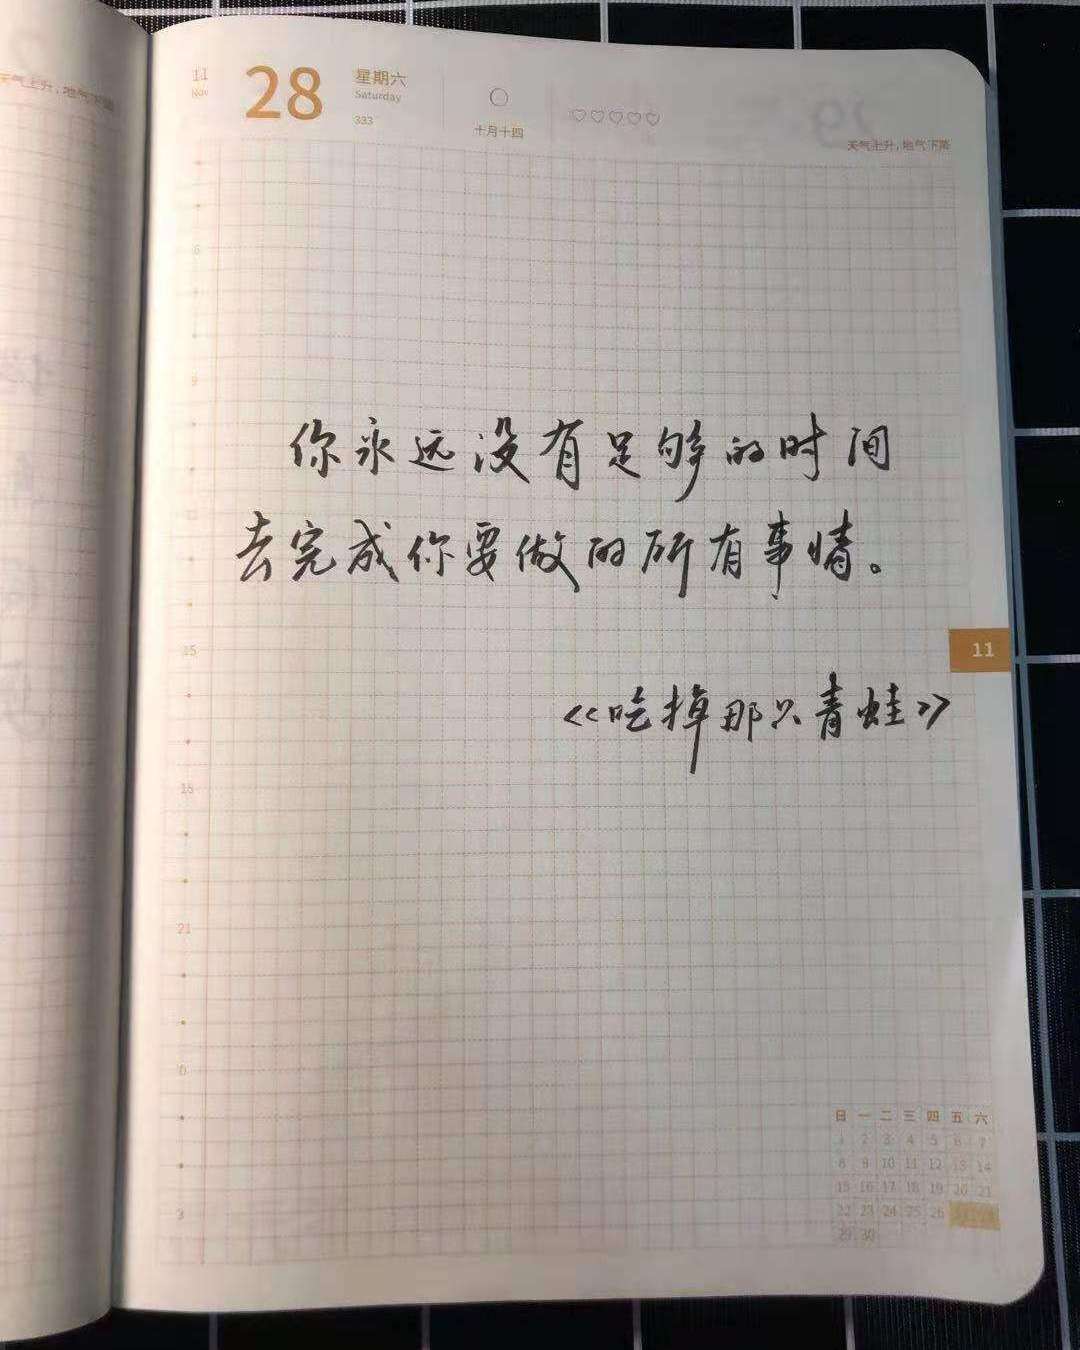 11
Nov
28
星期六
Saturday
333
十月十四
天气上升，地气下降
天气上升，地气下降
6
9
你永远没有足够的时间
去完成你要做的所有事情。
15
11
《吃掉那只青蛙》
18
21
0
3
日 一 二 三 四 五 六
1 2 3 4 5 6 7
8 9 10 11 12 13 14
15 16 17 18 19 20 21
22 23 24 25 26
29 30